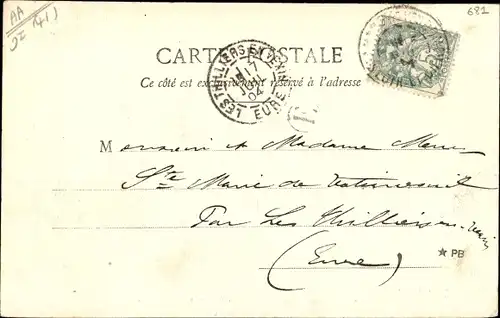 AA
681
CARTE POSTALE
Ce côté est exclusivement réservé à l'adresse
LES THILLIERS EN VEXIN
17
04
EURE
Monsieur et Madame
Ste Marie de Vatimesnil
Par Les Thilliers en Vexin
(Eure)
★ PB